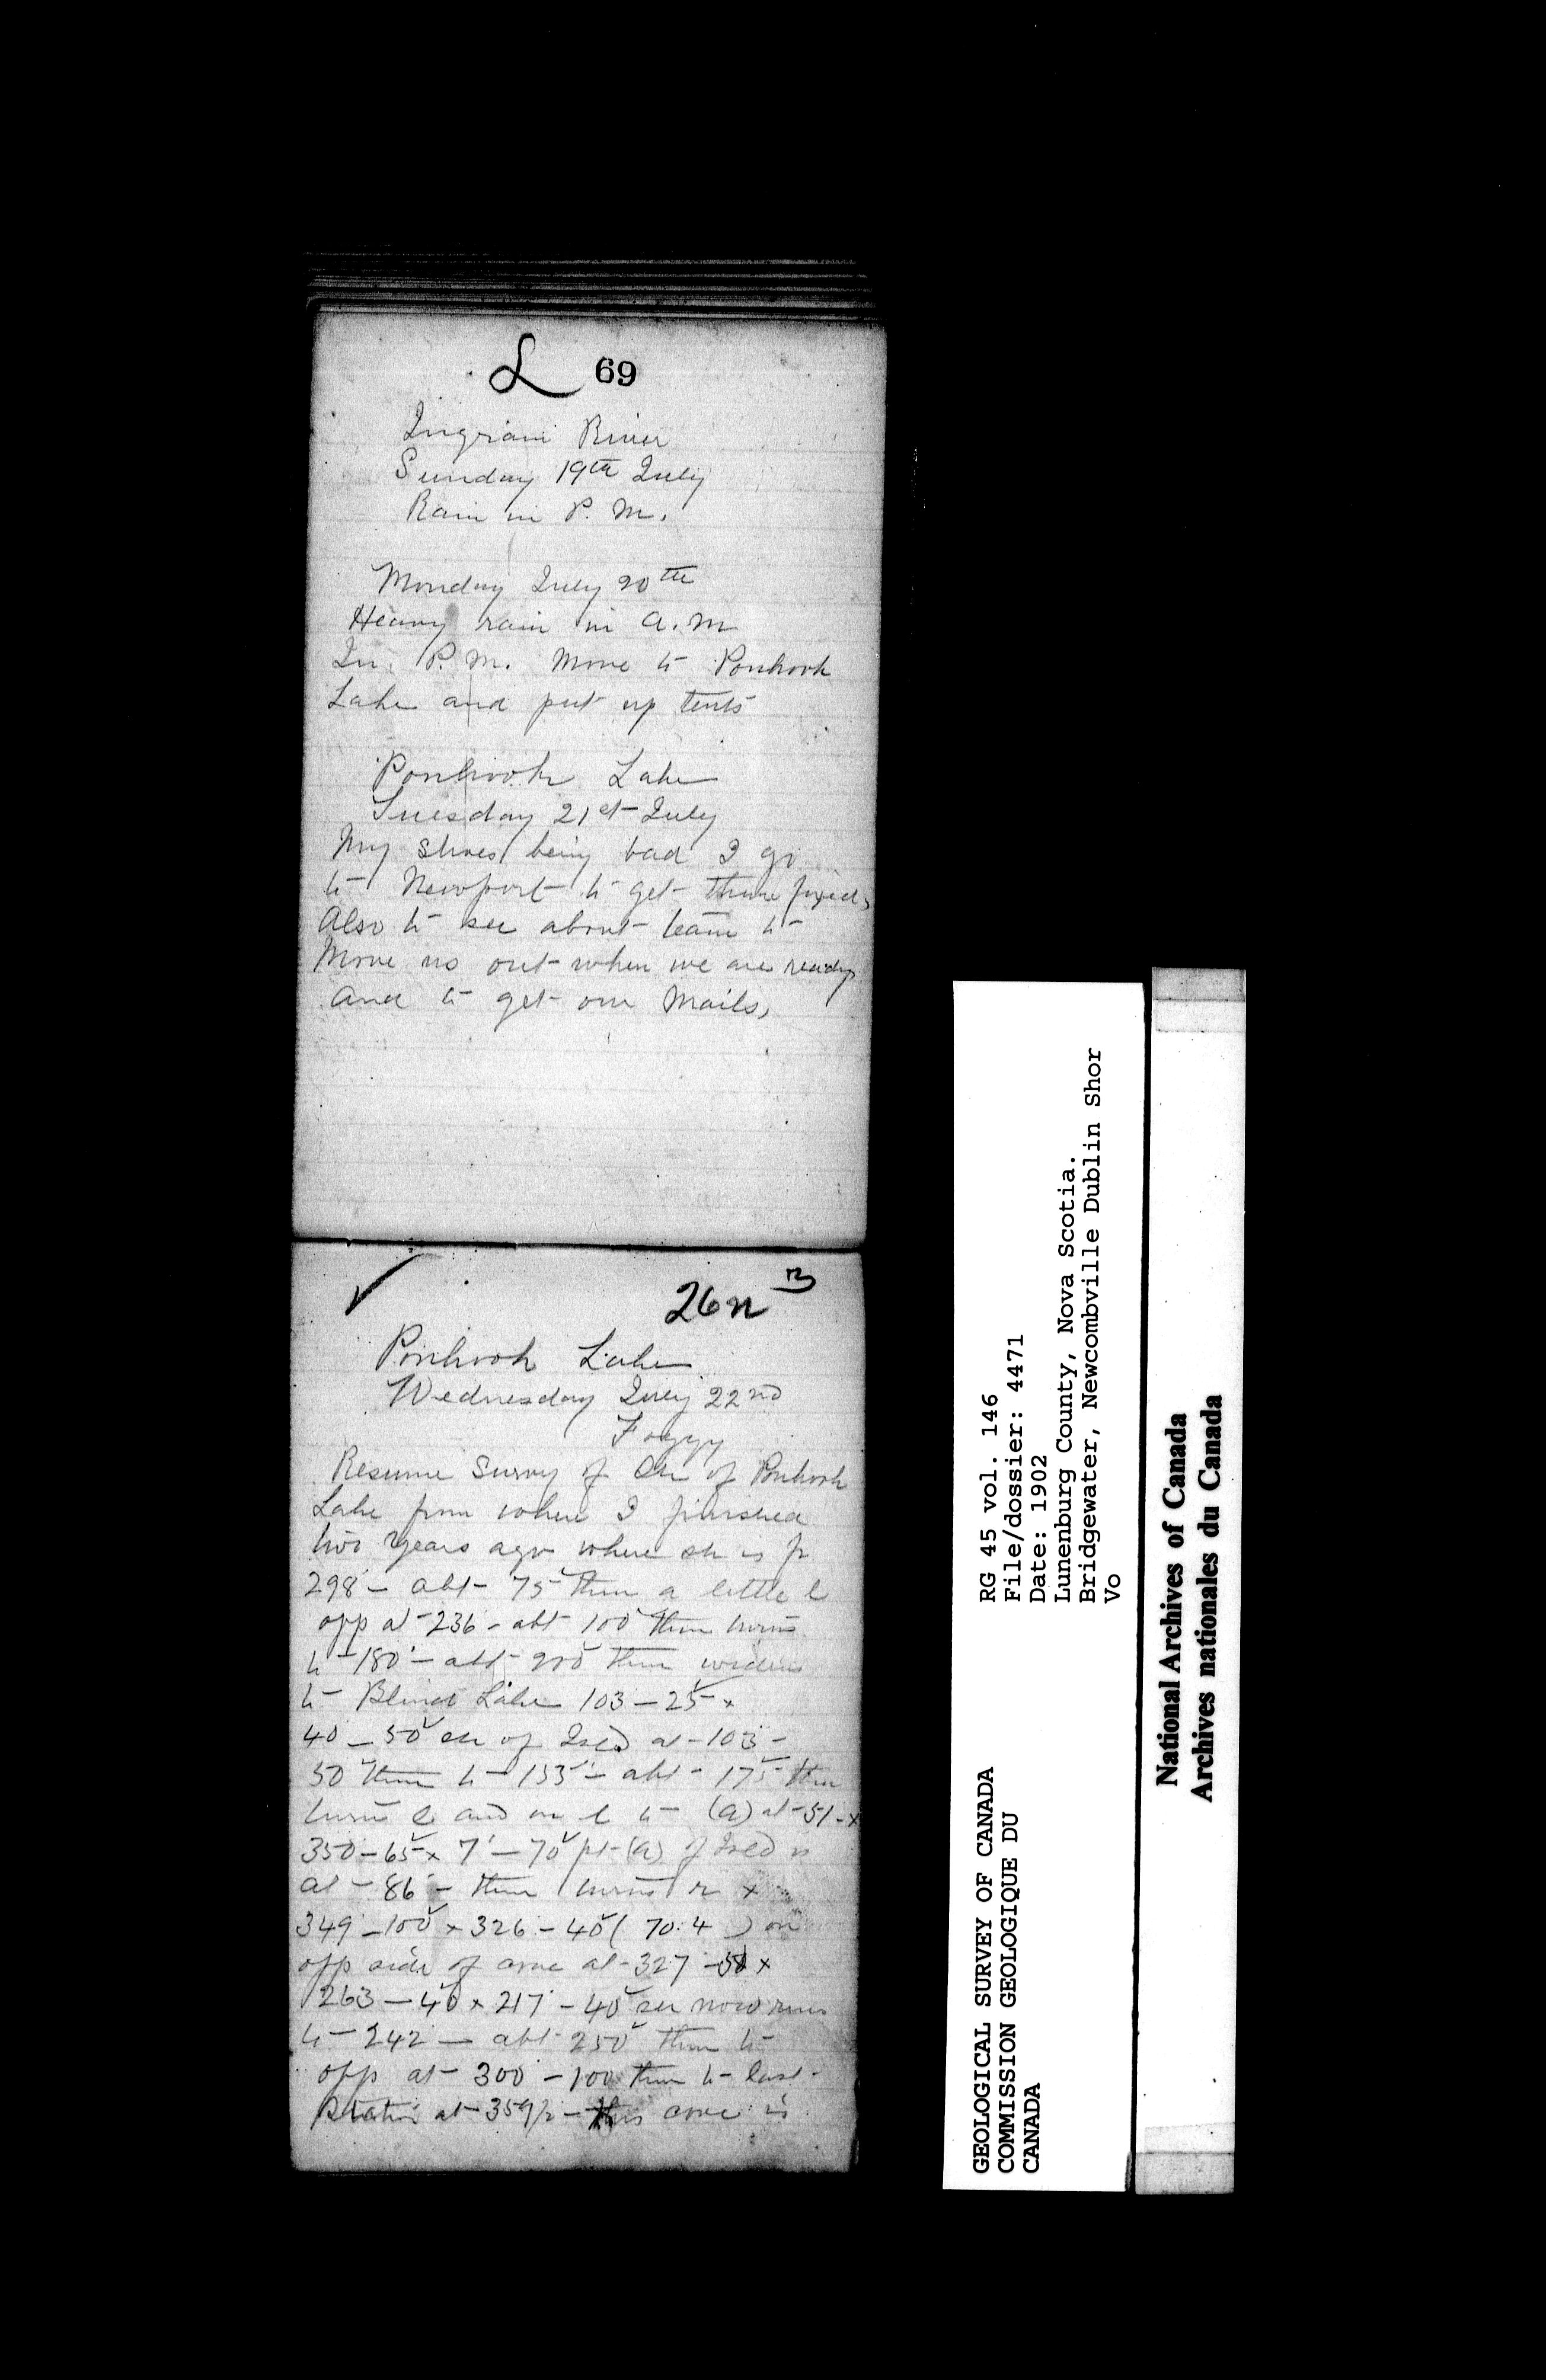 L 69
Ingram River
Sunday 19th July
Rain in P. M.
Monday July 20th
Heavy rain in A. M
In P. M. Move to Ponhook
Lake and put up tents
Ponhook Lake
Tuesday 21st July
My shoes being bad I go
to Newport to get them fixed,
Also to see about team to
Move us out when we are ready
and to get our mails,
26n
Ponhook Lake
Wednesday July 22nd
Foggy
Resume Survey of of Ponhook
Lake from where I finished
two years ago where sh is fr
298 - abt - 75 then a little l
opp at 236 - abt 100 then turns
to 180 - abt - 200 then widens
to Blind Lake 103 - 25 x
40 - 50 sh of Isld at - 103 -
50 then to - 155 - abt - 175 then
turns l and on l to - (a) at - 51 - x
350 - 65 x 7 - 70 pt - (a) of Isld is
at - 86 - then turns r x
349 - 100 x 326 - 40 ( 70.4 ) on
opp side of cove at - 327 - 50 x
263 - 40 x 217 - 40 sh now runs
to - 242 - abt 250 then to
opp at - 300 - 100 then to last
Station at - 359½ - this cove is
RG 45 vol. 146
File/dossier: 4471
Date: 1902
Lunenburg County, Nova Scotia.
Bridgewater, Newcombville Dublin Shor
Vo
GEOLOGICAL SURVEY OF CANADA
COMMISSION GEOLOGIQUE DU
CANADA
National Archives of Canada
Archives nationales du Canada